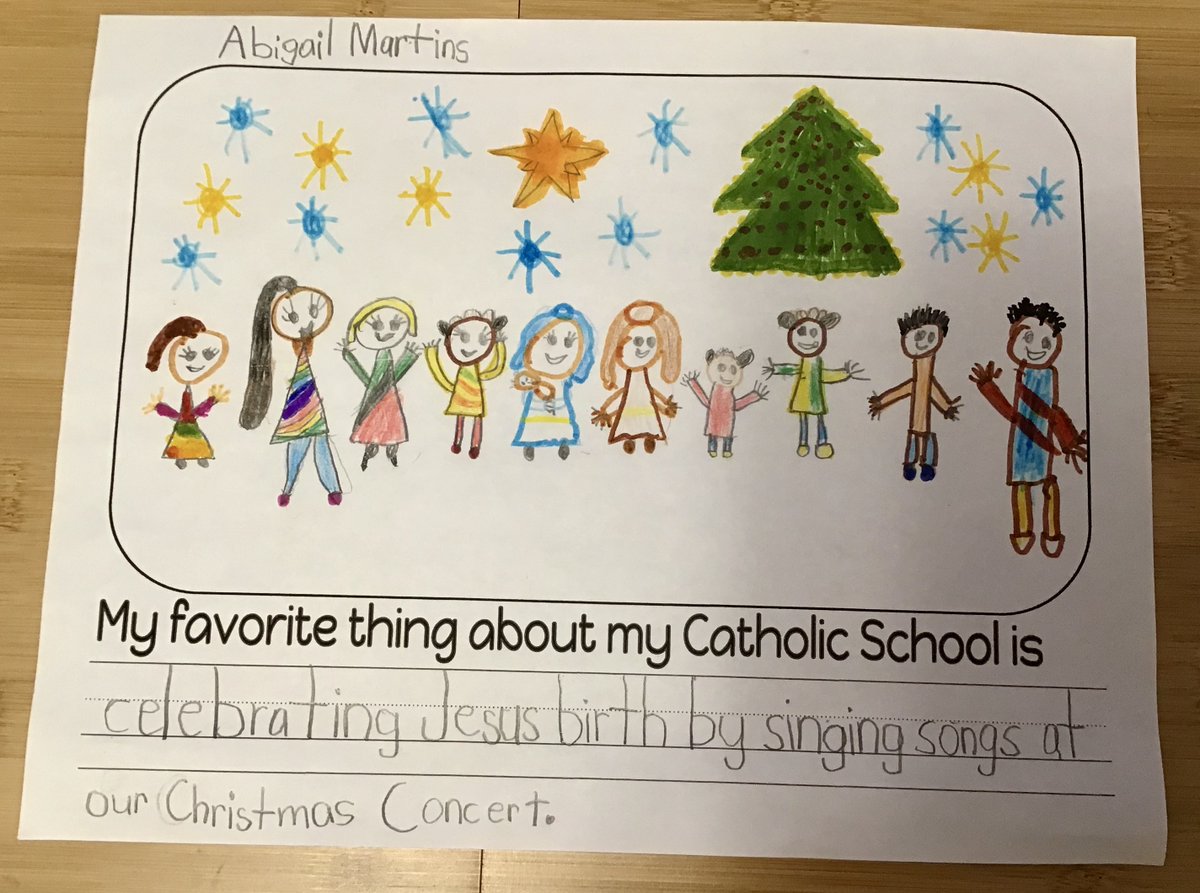 Abigail Martins
My favorite thing about my Catholic School is
celebrating Jesus birth by singing songs at
our Christmas Concert.